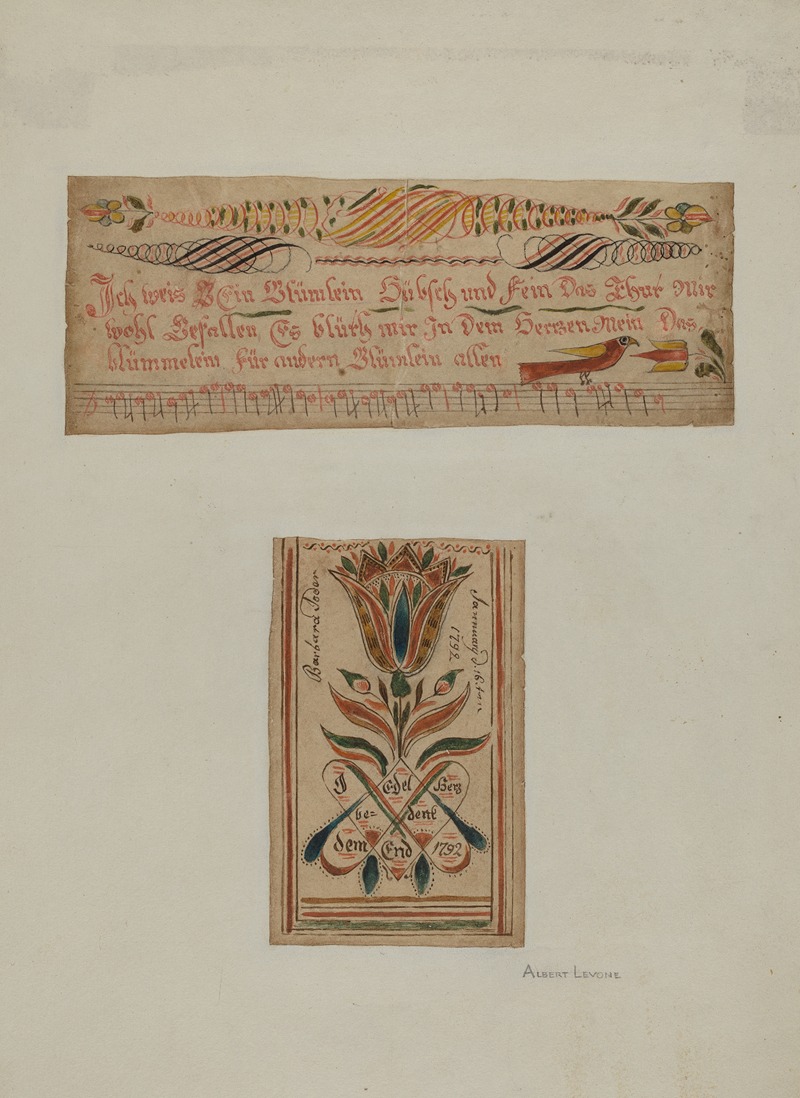 Ich weis Ein Blümlein Hübsch und Fein Das Thut Mir
wohl Gefallen, Es blüth mir In Dem Herzen Mein Das
blümmelein Für andern Blümlein allen
Barbara Toder
January D. 16.ten
1792
J Edel Herz
be= denk
dem End 1792
ALBERT LEVONE